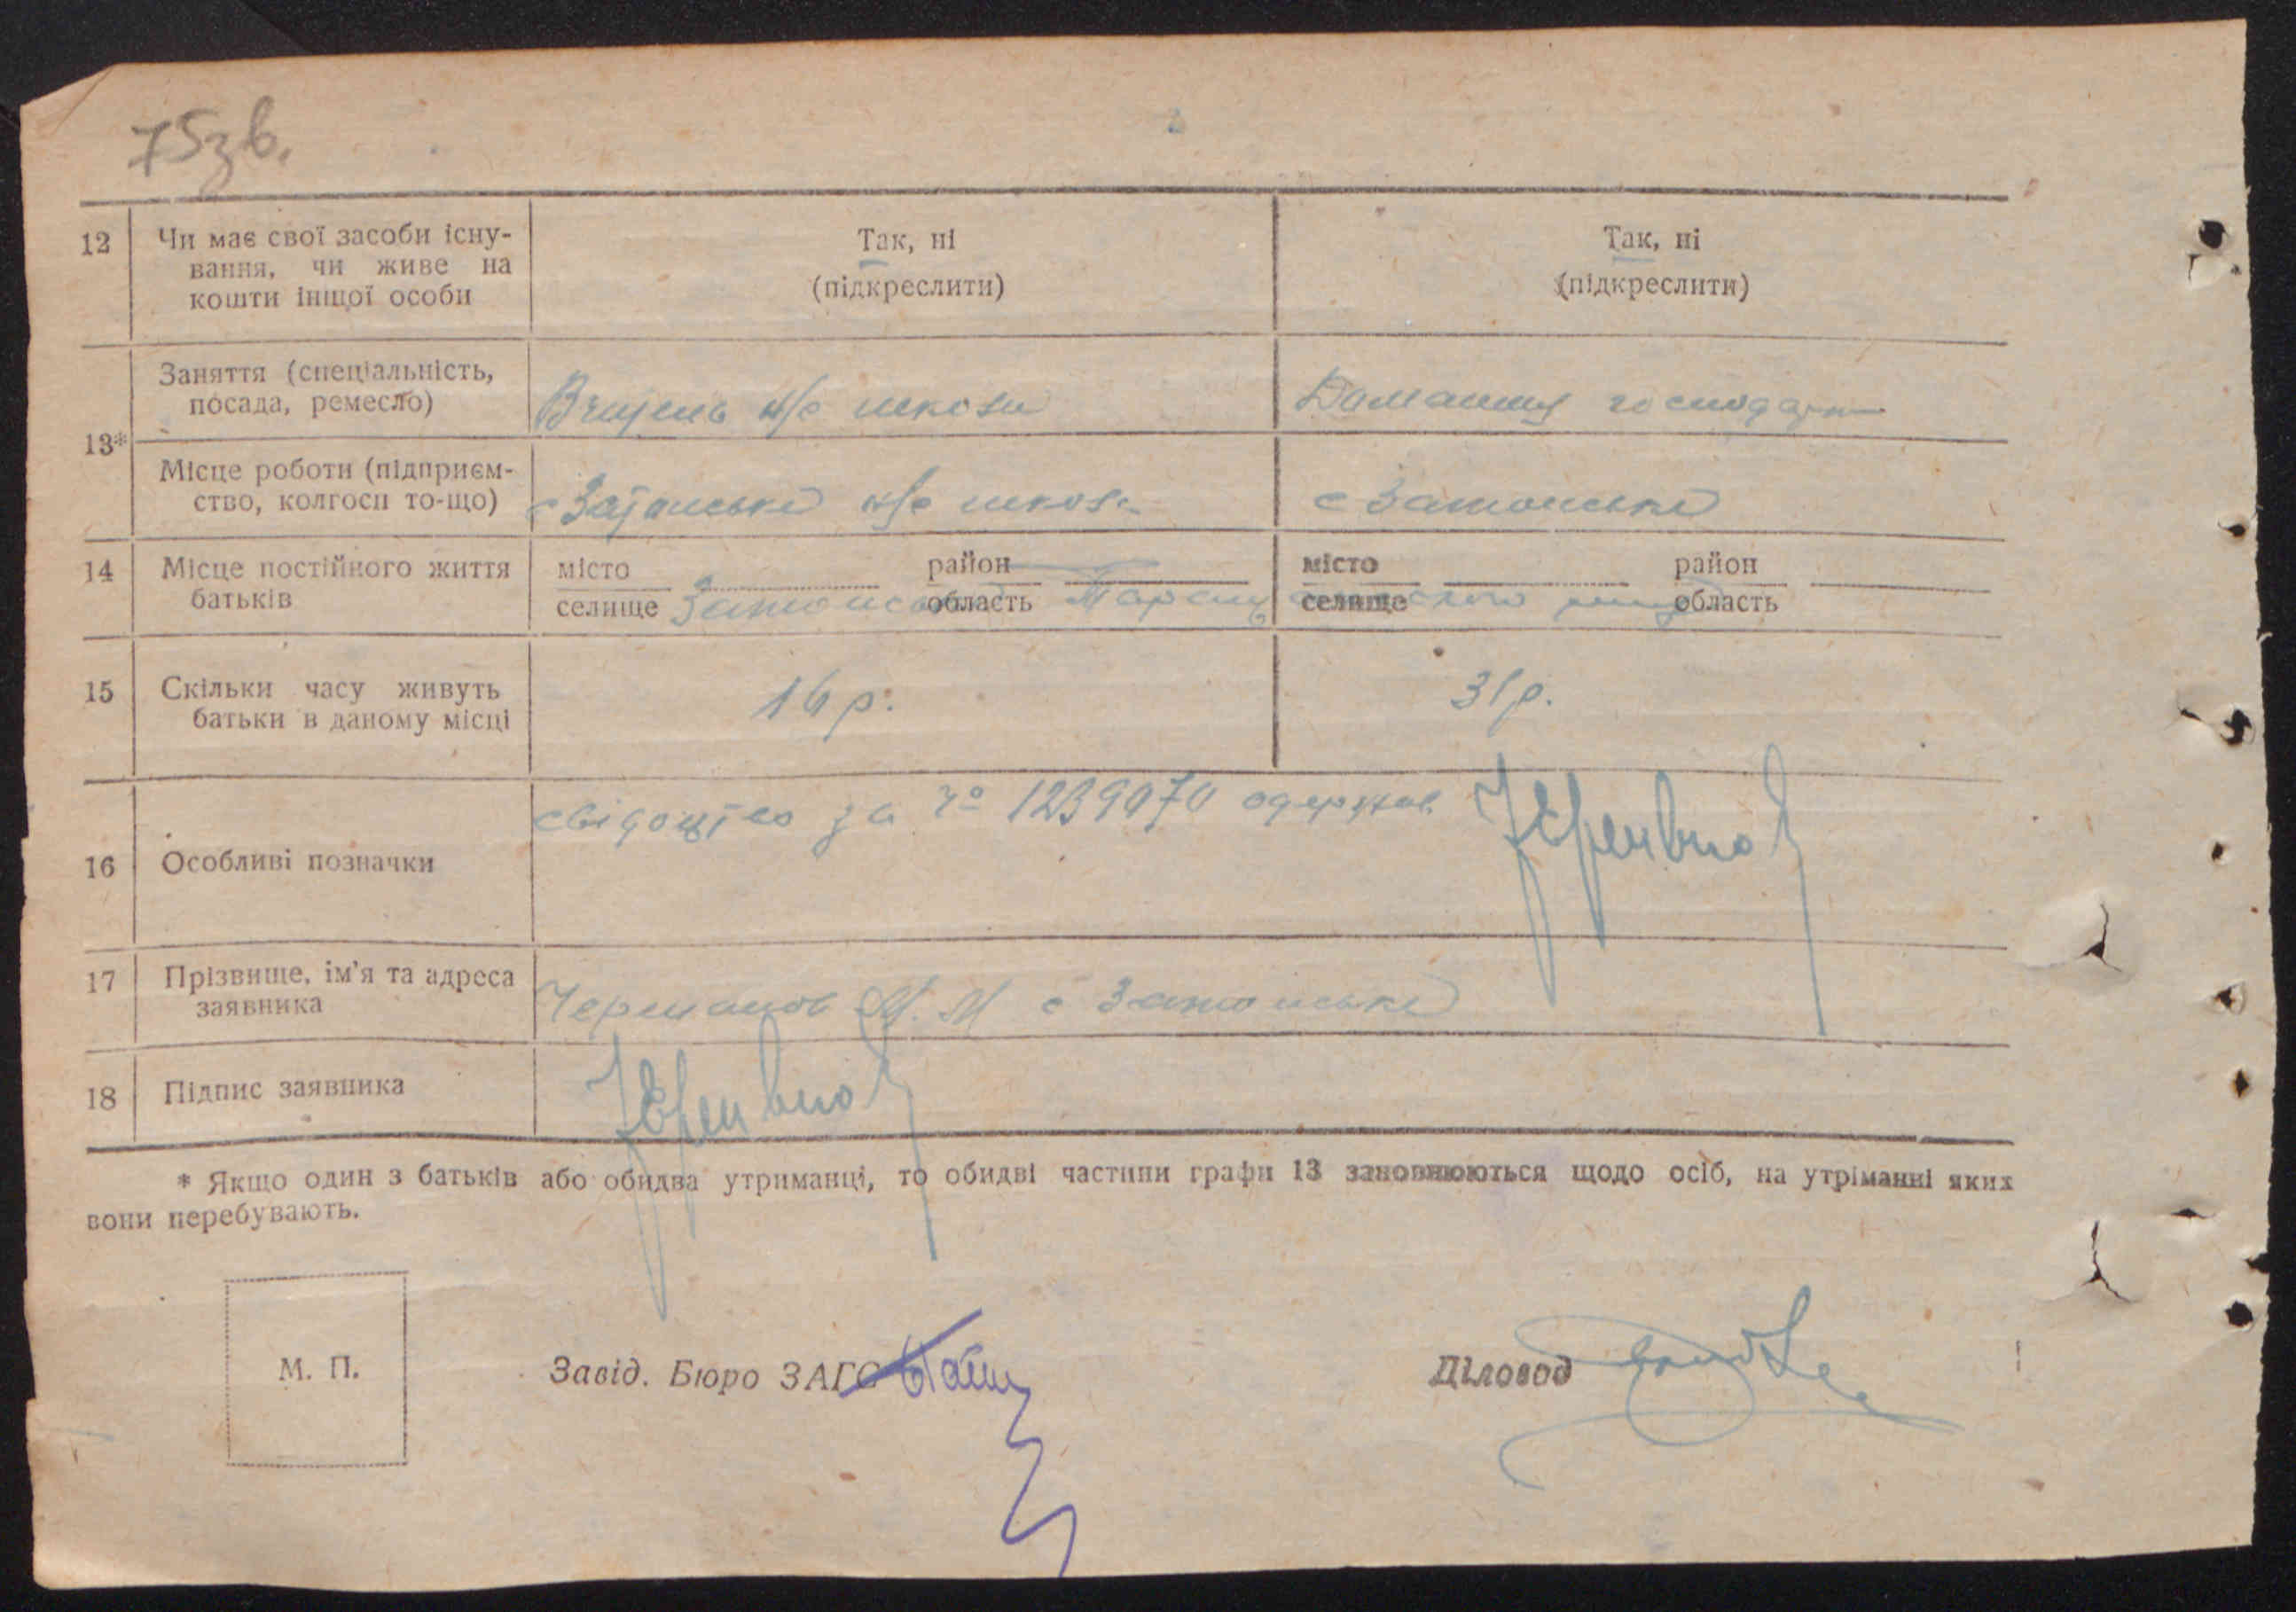 75зв.
12 Чи має свої засоби існу- Так, ні Так, ні
вання, чи живе на
кошти іншої особи (підкреслити) (підкреслити)
Заняття (спеціальність,
посада, ремесло) Вчитель н/с школи Домашня господарка
13*
Місце роботи (підприєм-
ство, колгосп то-що) с Затонське н/с школа с Затонське
14 Місце постійного життя місто район місто район
батьків селище Затонське область селище область
15 Скільки часу живуть 16 р. 31 р.
батьки в даному місці
свідоцтво за № 1239070 одержав
16 Особливі позначки
17 Прізвище, ім'я та адреса
заявника М. М с Затонське
18 Підпис заявника
* Якщо один з батьків або обидва утриманці, то обидві частини графи 13 заповнюються щодо осіб, на утріманні яких
вони перебувають.
М. П. Завід. Бюро ЗАГС Діловод